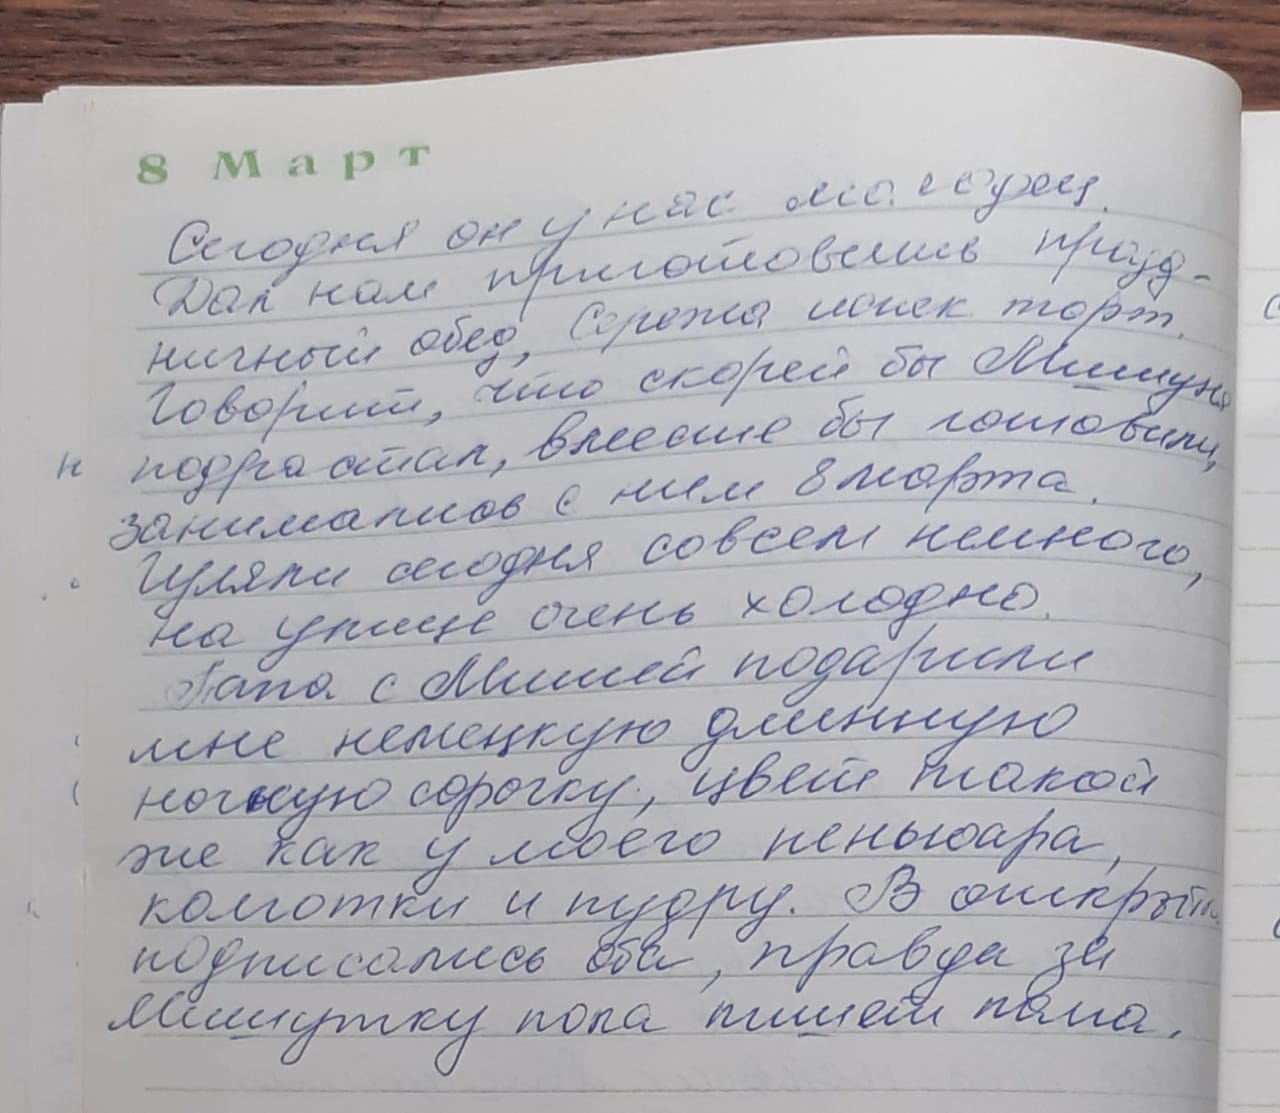 8 Март
Сегодня он у нас
Дал нам приготовить празд-
ничный обед, Сережа испек торт.
Говорит, что скорей бы Мишуня
подрастал, вместе бы готовили,
занимались с ним 8 марта.
Гуляли сегодня совсем немного,
на улице очень холодно.
Папа с Мишей подарили
мне немецкую длинную
ночную сорочку, цвет такой
же как у моего пеньюара,
колготки и пудру. В открытк
подписались оба, правда за
Мишутку пока пишет папа.